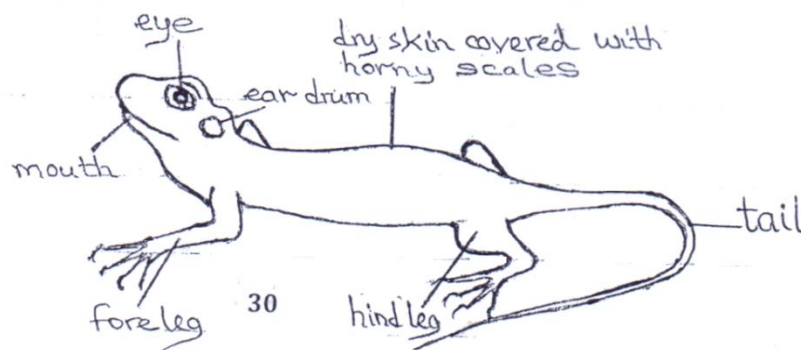 eye
dry skin covered with
horny scales
ear drum
mouth
tail
foreleg
30
hind leg